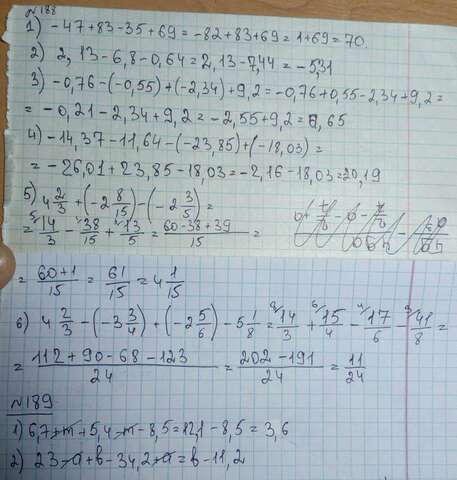 №188
1) -47+83-35+69=-82+83+69=1+69=70.
2) 2,13-6,8-0,64=2,13-7,44=-5,31
3) -0,76-(-0,55)+(-2,34)+9,2=-0,76+0,55-2,34+9,2=
=-0,21-2,34+9,2=-2,55+9,2=6,65
4) -14,37-11,64-(-23,85)+(-18,03)=
=-26,01+23,85-18,03=-2,16-18,03=20,19
5) 4 2/3 + (-2 8/15) - (-2 3/5) =
= 14/3 - 38/15 + 13/5 = (60-38+39)/15 =
= (60+1)/15 = 61/15 = 4 1/15
6) 4 2/3 - (-3 3/4) + (-2 5/6) - 5 1/8 = 14/3 + 15/4 - 17/6 - 41/8 =
= (112+90-68-123)/24 = (202-191)/24 = 11/24
№189
1) 6,7+m+5,4-m-8,5=12,1-8,5=3,6
2) 23-a+b-34,2+a=b-11,2